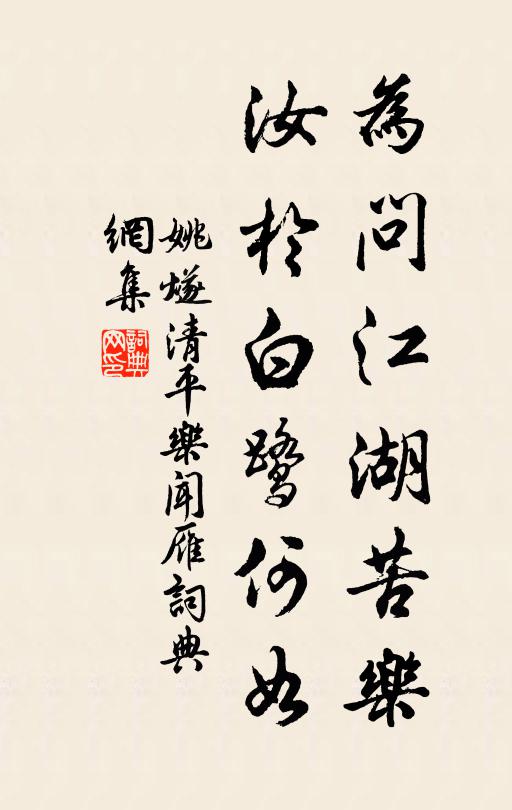 為問江湖苦樂
汝於白鷺何如
姚燧清平樂聞雁詞典
網集
詞典網印